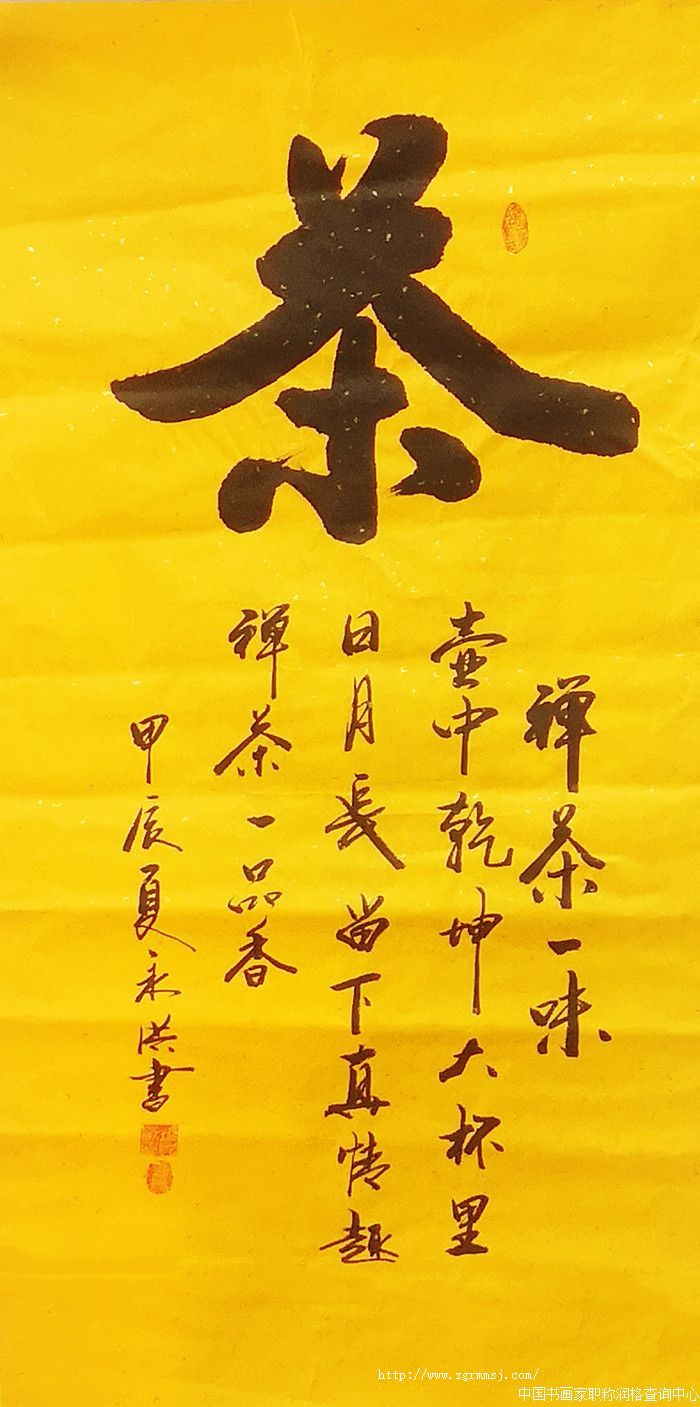 茶
禅茶一味
壶中乾坤大杯里
日月长留下真情趣
禅茶一品香
甲辰夏永洪书
http://www.zgrmmsj.com/
中国书画家职称润格查询中心